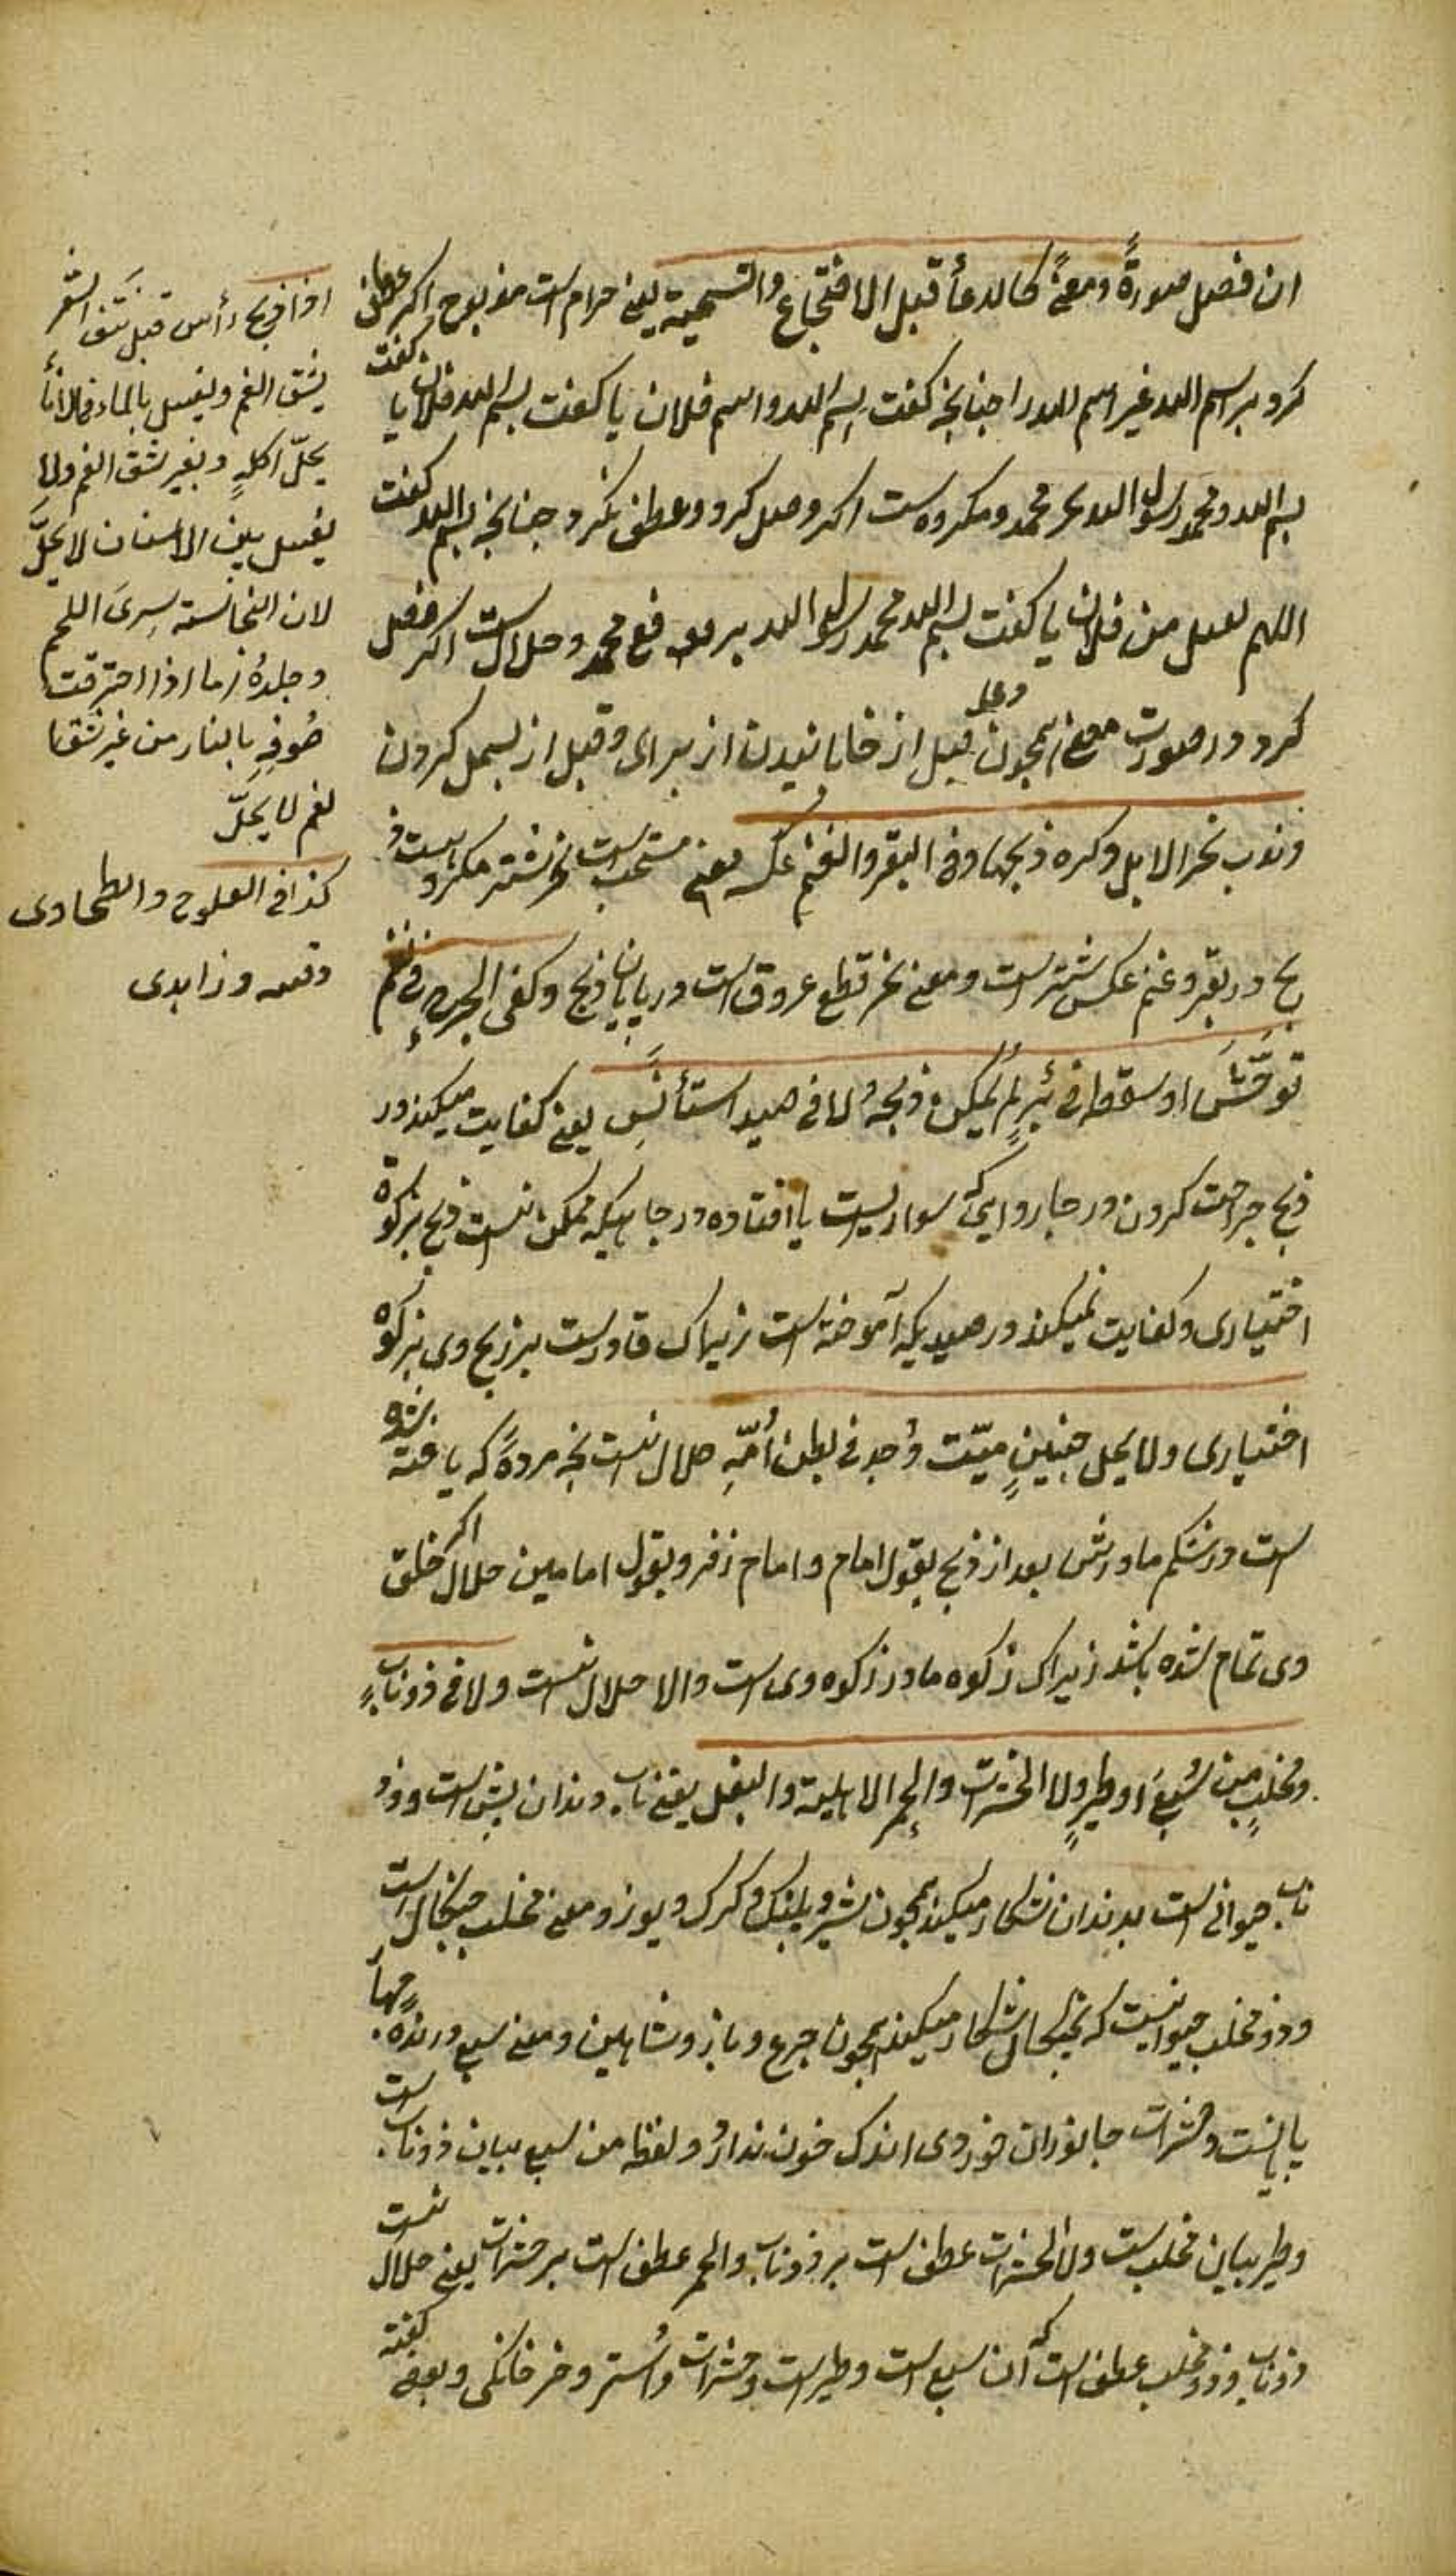 ان فصل صورةً ومعنًى كالدعأ قبل الاضجاع والتسمية يعنى حرام است مذبوح اكر عطف
كرد بر اسم الله غير اسم الله را چنانچه كفت بسم الله واسم فلان يا كفت بسم الله فلان يا كفت
بسم الله ومحمد رسول الله بجر محمد ومكروه است اكر وصل كرد وعطف نكرد چنانچه بسم الله كفت
اللهم تقبل من فلان يا كفت بسم الله محمد رسول الله برفع محمد وحلال است اكر فصل
كرد در صورت معنى همچون دعا قبل از خابانيدن از براى وقبل از بسمل كردن
وندب نحر الابل وكره ذبحها وفى البقر والغنم عكسه يعنى مستحب است نحر شتر مكروه است ذ
بح ودر بقر وغنم عكس شتر است ومعنى نحر قطع عروق است در پايان ذبح وكفى الجرح فى نعم
توحّش او سقط فى بئر لم يمكن ذبحه لا فى صيد استأنس يعنى كفايت ميكند در
ذبح جراحت كردن در چاروايى كه سوار يست يا افتاده در چاهيكه ممكن نيست ذبح بزكوة
اختيارى وكفايت نميكند در صيديكه آموخته است زيراك قادر است بر ذبح وى بزكوة
اختيارى ولا يحل جنينٍ ميّت وُجد فى بطن أُمّهِ حلال نيست بچه مردهٔ كه يافته شده
است در شكم مادرش بعد از ذبح بقول امام وامام زفر وبقول امامين حلال اكر خلق
وى تمام شده باشد زيراك زكوه مادر زكوه وى است والا حلال نيست ولا فى ذوناب
ومخلبٍ من سبع او طيرٍ ولا الحشرات والحمر الاهلية والبغل يعنى ناب دندان پيش است وذو
ناب حيوانى است بدندان شكار ميكند همچون شير وپلنك وكرك ويوز ومعنى مخلب چنكال است
وذو مخلب حيوانيست كه بچنكال شكار ميكند همچون چرغ وباز وشاهين ومعنى سبع درنده چهار
پا يست وحشرات جانوران خوردى اندك خون ندارد ولفظ من سبع بيان ذوناب است
وطير بيان مخلب است ولا الحشرات عطف است بر ذوناب والحمر عطف است بر حشرات يعنى حلال نيست
ذوناب وذو مخلب عطف است كه آن سبع است وطير است وحشرات وأستر وخر خانكى وبعضى كفته
اذا ذبح رأس قبل نتف الشعر
يشق الفم ويغسل بالماء فالآنا
يحلّ اكله وبغير شق الفم ولا
يغسل بين الاسنان لا يحلّ
لان النجاسته سرى اللحم
وجلدهُ اما اذا احترقت
صُوفهِ بالنار من غير شق
لفم لا يحلّ
كذا فى العلوح والطحاوى
وزاهدى